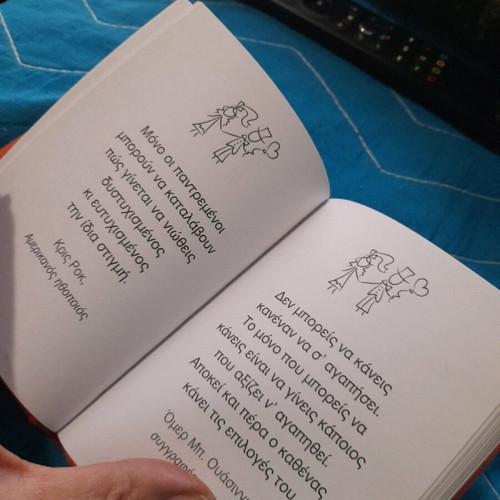 Μόνο οι παντρεμένοι
μπορούν να καταλάβουν
πώς γίνεται να νιώθεις
δυστυχισμένος
κι ευτυχισμένος
την ίδια στιγμή.
Κρις Ροκ,
Αμερικανός ηθοποιός
Δεν μπορείς να κάνεις
κανέναν να σ' αγαπήσει.
Το μόνο που μπορείς να
κάνεις είναι να γίνεις κάποιος
που αξίζει ν' αγαπηθεί.
Αποκεί και πέρα ο καθένας
κάνει τις επιλογές του
Όμερ Μπ.